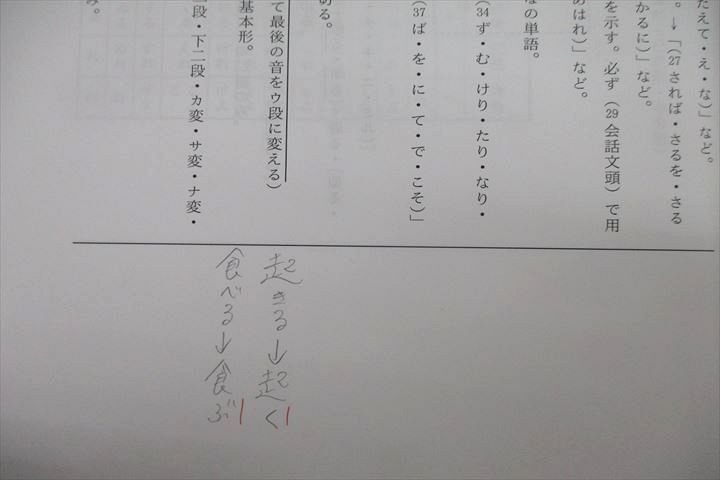 たえて・え・な)」など。
。→「(27 されば・さるを・さる
かるに)」など。
を示す。必ず(29 会話文頭)で用
あはれ)」など。
なの単語。
(34 ず・む・けり・たり・なり・
(37 ば・を・に・て・で・こそ)」
ある。
て最後の音をゥ段に変える)
基本形。
二段・下二段・カ変・サ変・ナ変・
み。
起きる→起く
食べる→食ぶ